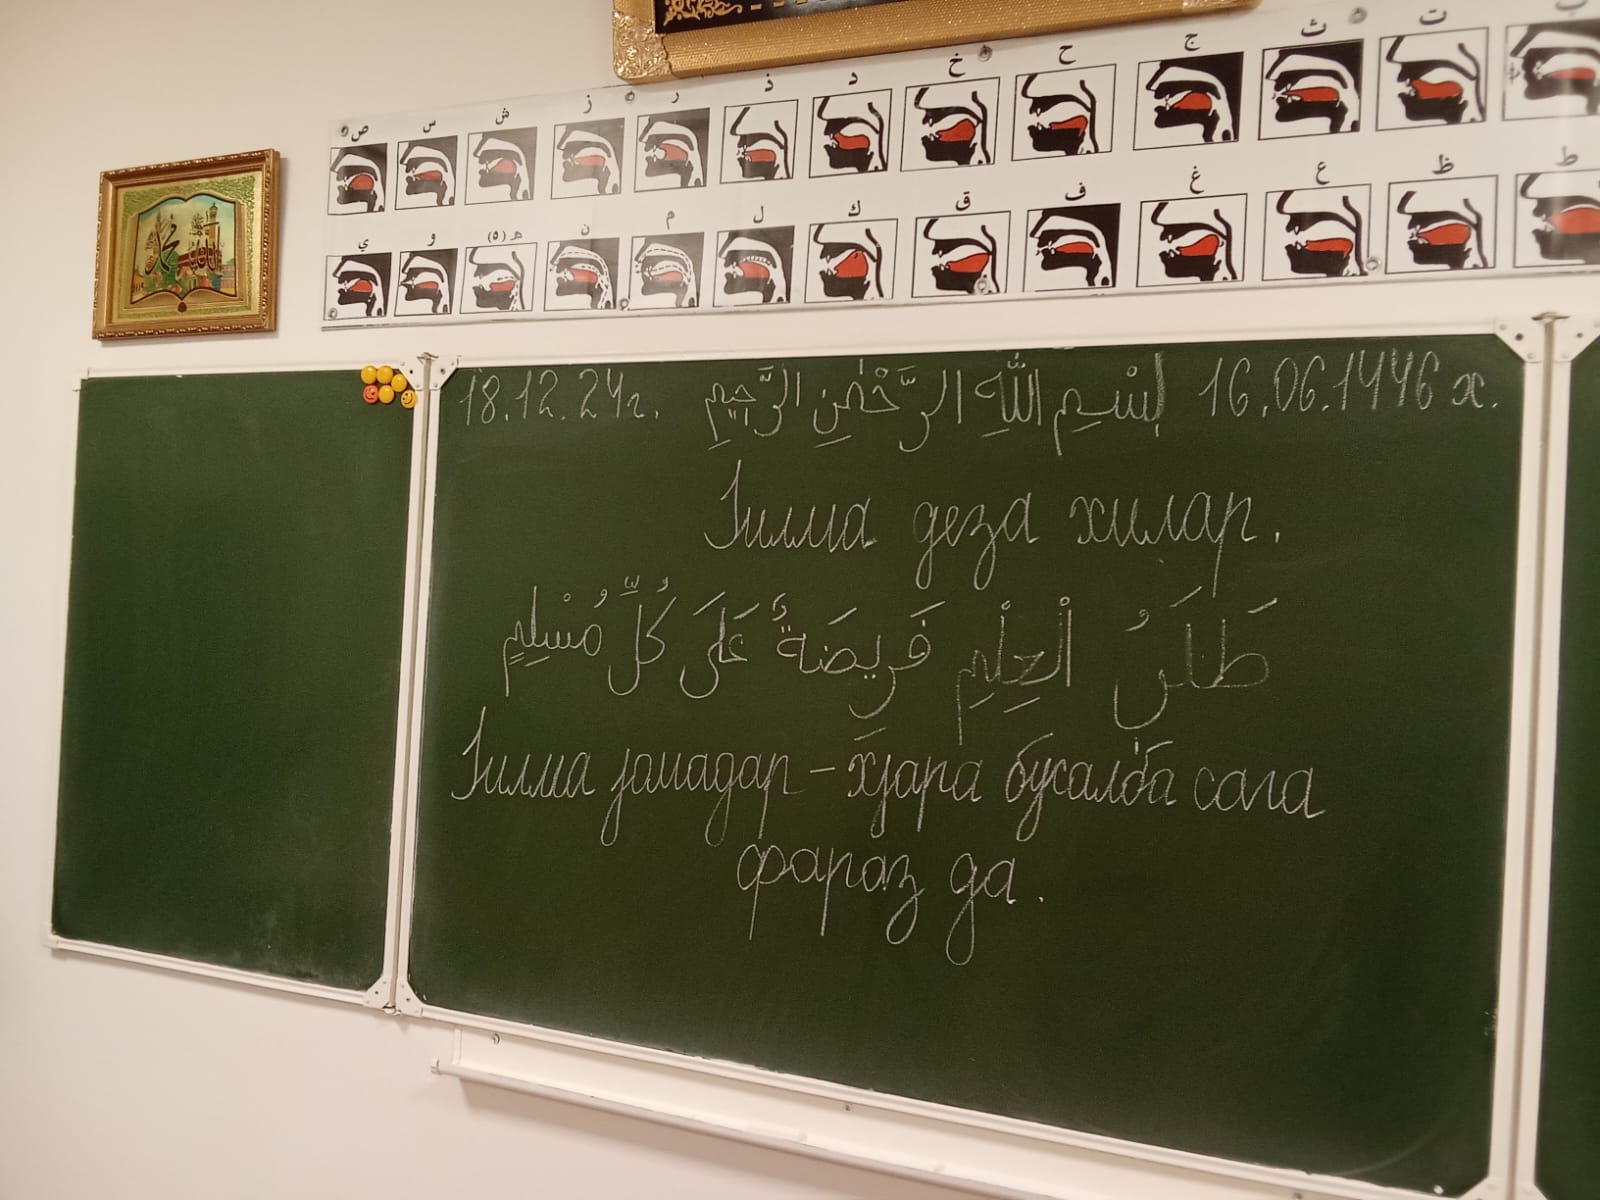 ب ت ث ج ح خ د ذ ر ز ش س ص
ط ظ ع غ ف ق ك ل م ن هـ (٥) و ي
18.12.24г. بِسْمِ اللَّهِ الرَّحْمٰنِ الرَّحِيمِ 16.06.1446 х.
Ӏилма деза хилар.
طَلَبُ الْعِلْمِ فَرِيضَةٌ عَلَى كُلِّ مُسْلِمٍ
Ӏилма ӏомадар – хӏара бусалба сага
фараз да.